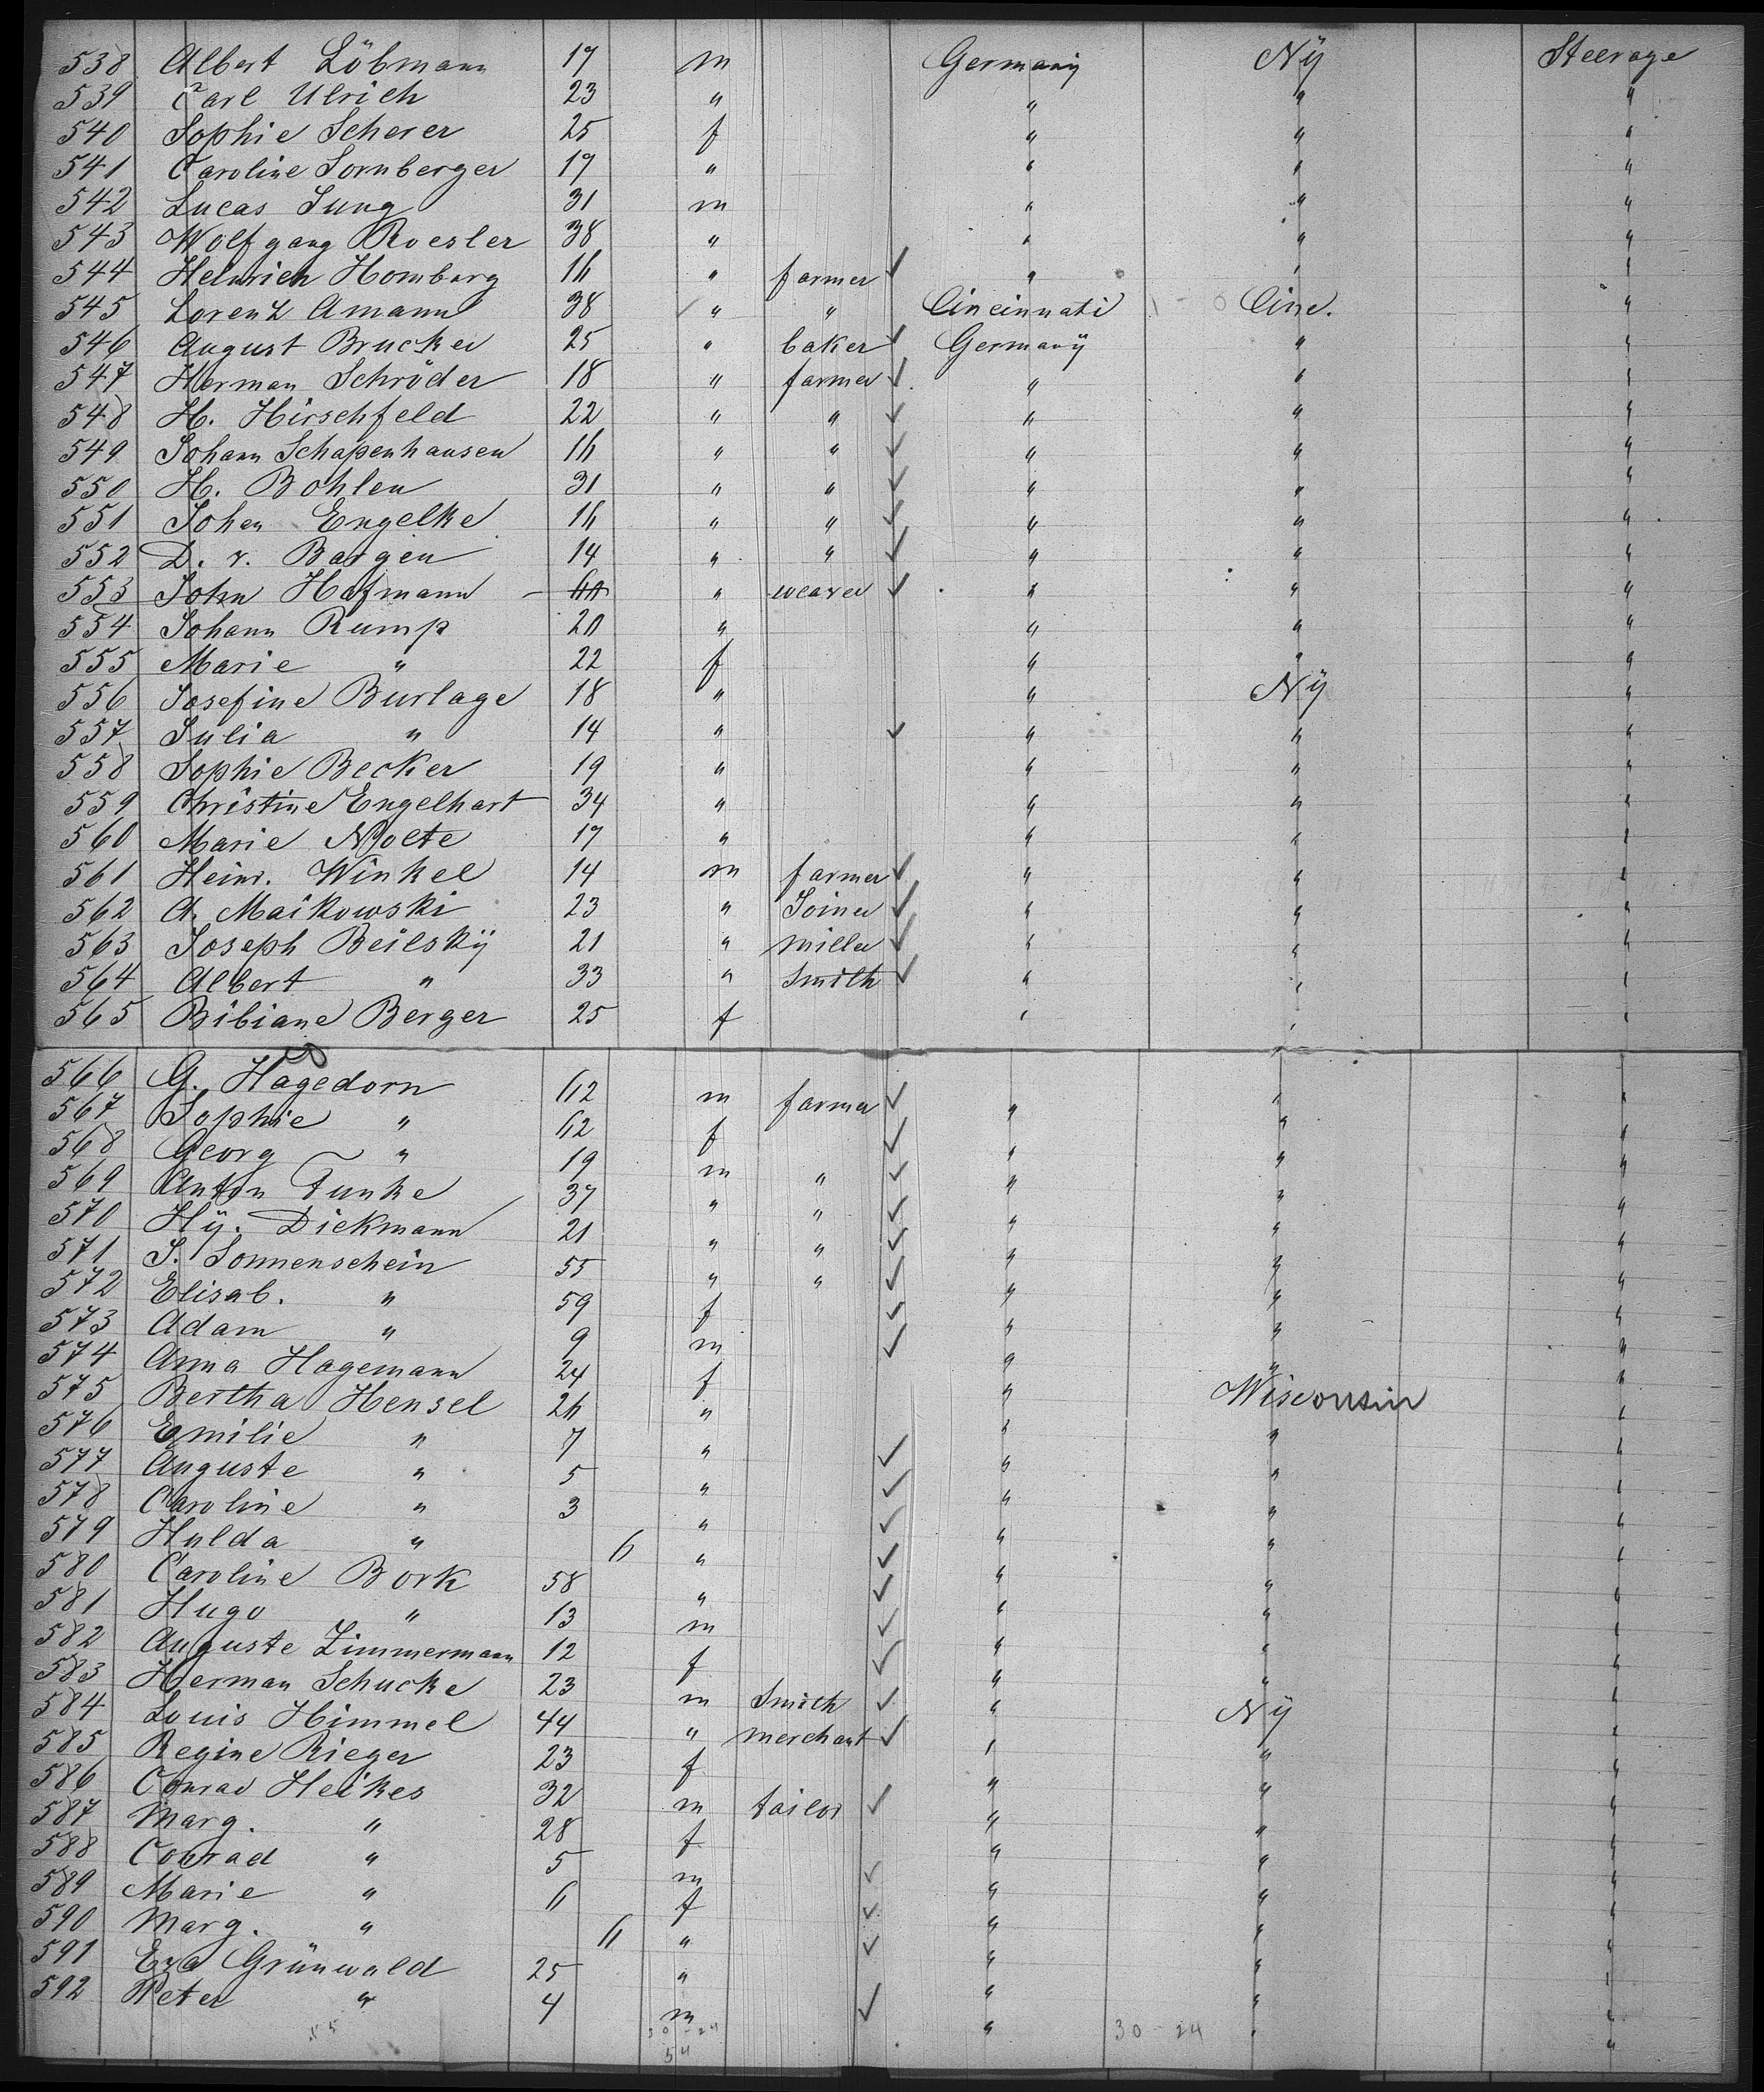 538 Albert Löbmann 17 m Germany Ny Steerage
539 Carl Ulrich 23 " " " "
540 Sophie Scherer 25 f " " "
541 Caroline Sornberger 17 " " " "
542 Lucas Jung 31 m " " "
543 Wolfgang Roesler 38 " " " "
544 Heinrich Homburg 16 " farmer " " "
545 Lorenz Amann 38 " " Cincinnati Cinc. "
546 August Brucker 25 " baker Germany " "
547 Herman Schröder 18 " farmer " " "
548 H. Hirschfeld 22 " " " " "
549 Johann Schapenhausen 16 " " " " "
550 H. Bohlen 31 " " " " "
551 Johan Engelke 16 " " " " "
552 D. v. Bargen 14 " " " " "
553 John Hofmann " weaver " " "
554 Johann Rump 20 " " " "
555 Marie " 22 f " " "
556 Josefine Burlage 18 " " Ny "
557 Julia " 14 " " " "
558 Sophie Becker 19 " " " "
559 Christine Engelhart 34 " " " "
560 Marie Nolte 17 " " " "
561 Heinr. Winkel 14 m farmer " " "
562 A. Maikowski 23 " Joiner " " "
563 Joseph Beilsky 21 " miller " " "
564 Albert " 33 " Smith " " "
565 Bibiane Berger 25 f " " "
566 G. Hagedorn 62 m farmer " " "
567 Sophie " 62 f " " "
568 Georg " 19 m " " " "
569 Anton Funke 37 " " " " "
570 Hy. Diekmann 21 " " " " "
571 S. Sonnenschein 55 " " " " "
572 Elisab. " 59 f " " "
573 Adam " 9 m " " "
574 Anna Hagemann 24 f " " "
575 Bertha Hensel 26 " " Wisconsin "
576 Emilie " 7 " " " "
577 Auguste " 5 " " " "
578 Caroline " 3 " " " "
579 Hulda " 6 " " " "
580 Caroline Bork 58 " " " "
581 Hugo " 13 m " " "
582 Auguste Zimmermann 12 f " " "
583 Herman Schucke 23 m Smith " " "
584 Louis Himmel 44 " merchant " Ny "
585 Regine Rieger 23 f " " "
586 Conrad Heikes 32 m tailor " " "
587 Marg. " 28 f " " "
588 Conrad " 5 m " " "
589 Marie " 6 f " " "
590 Marg. " 6 " " " "
591 Eva Grünwald 25 " " " "
592 Peter " 4 m " " "
55 30-24 30-24
54